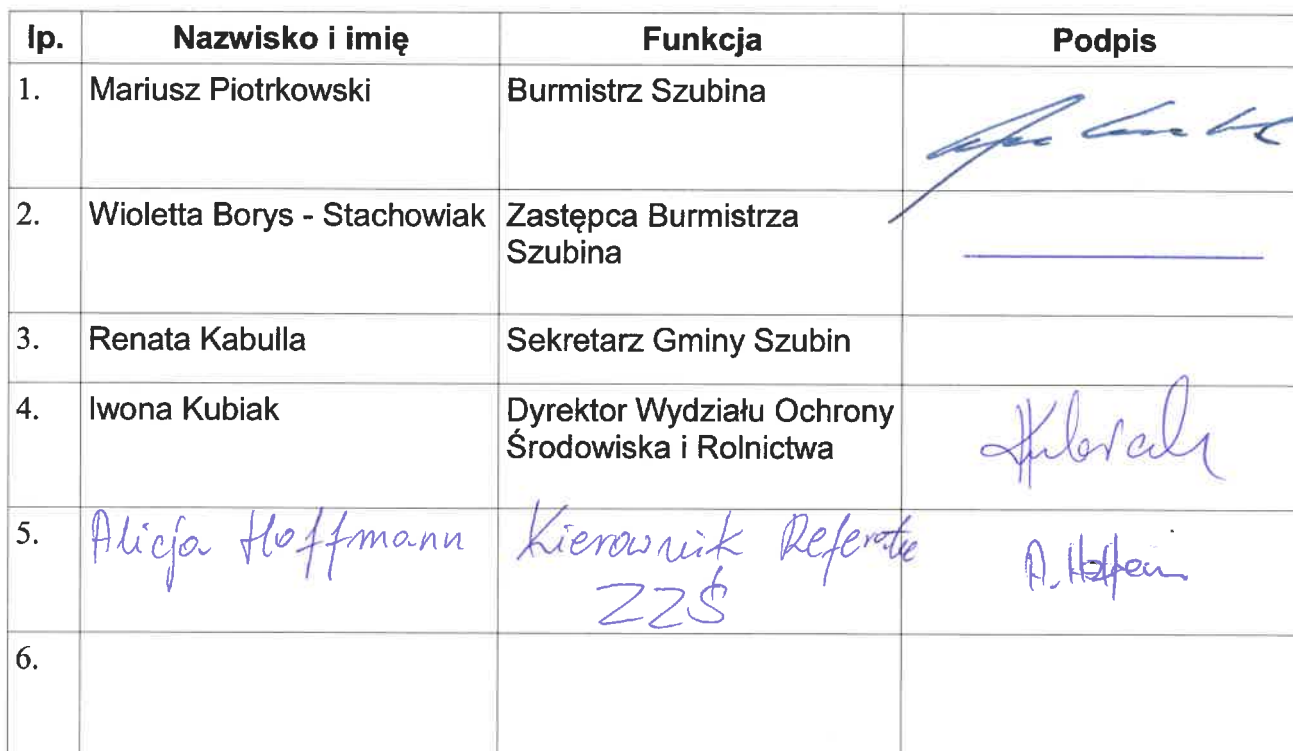 lp. Nazwisko i imię Funkcja Podpis
1. Mariusz Piotrkowski Burmistrz Szubina
2. Wioletta Borys - Stachowiak Zastępca Burmistrza
Szubina
3. Renata Kabulla Sekretarz Gminy Szubin
4. Iwona Kubiak Dyrektor Wydziału Ochrony
Środowiska i Rolnictwa
5. Alicja Hoffmann Kierownik Referatu
ZZŚ
6.